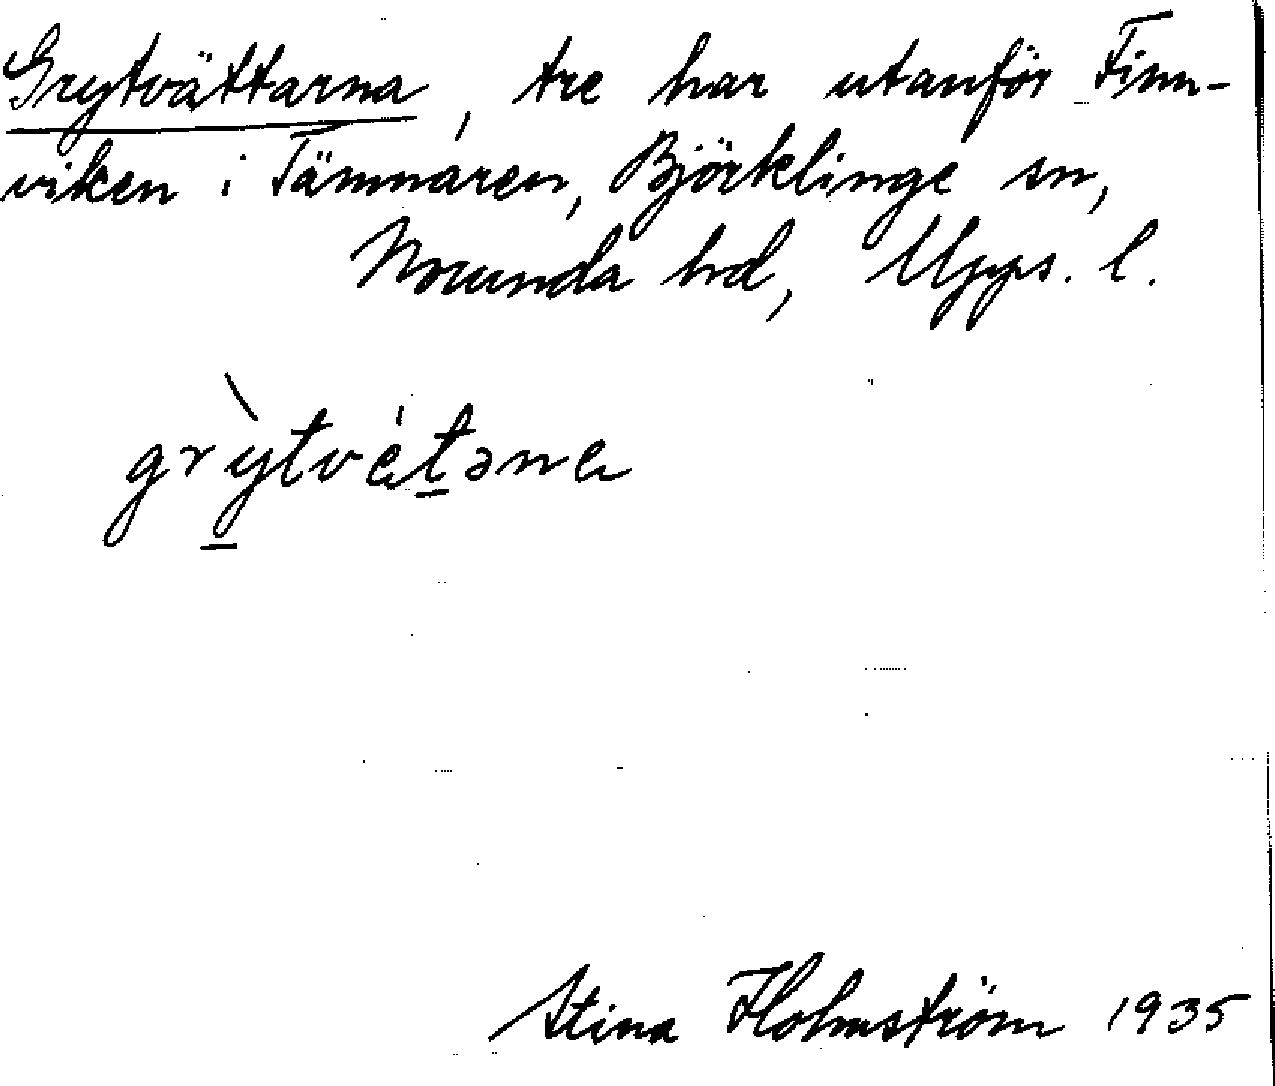 Grytvättarna, tre har utanför Finn-
viken i Tämnaren, Björklinge sn,
Norunda hd, Upps. l.
grỳtvètəna
Stina Holmström 1935